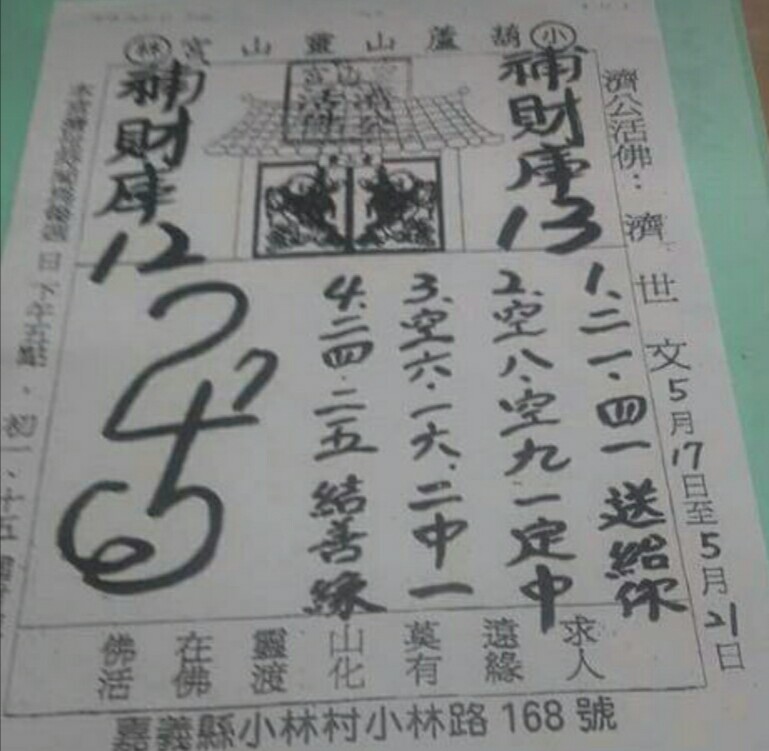 小林葫蘆山靈山宮
濟公活佛：濟世文5月17日至5月21日
補財庫13
補財庫12
1、二一、四一送給你
2、空八、空九一定中
3、空六、一六、二中一
4、二四、二五結善緣
求人
遠緣
莫有
山化
靈渡
在佛
佛活
日下午五點、初一、十五
嘉義縣小林村小林路168號